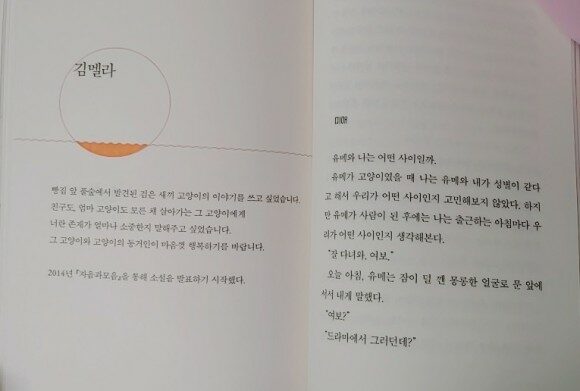 김멜라
빵집 앞 풀숲에서 발견된 검은 새끼 고양이의 이야기를 쓰고 싶었습니다.
친구도, 엄마 고양이도 모른 채 살아가는 그 고양이에게
너란 존재가 얼마나 소중한지 말해주고 싶었습니다.
그 고양이와 고양이의 동거인이 마음껏 행복하기를 바랍니다.
2014년 『자음과모음』을 통해 소설을 발표하기 시작했다.
유메와 나는 어떤 사이일까.
유메가 고양이였을 때 나는 유메와 내가 성별이 같다
고 해서 우리가 어떤 사이인지 고민해보지 않았다. 하지
만 유메가 사람이 된 후에는 나는 출근하는 아침마다 우
리가 어떤 사이인지 생각해본다.
"잘 다녀와, 여보."
오늘 아침, 유메는 잠이 덜 깬 몽롱한 얼굴로 문 앞에
서서 내게 말했다.
"여보?"
"드라마에서 그러던데?"